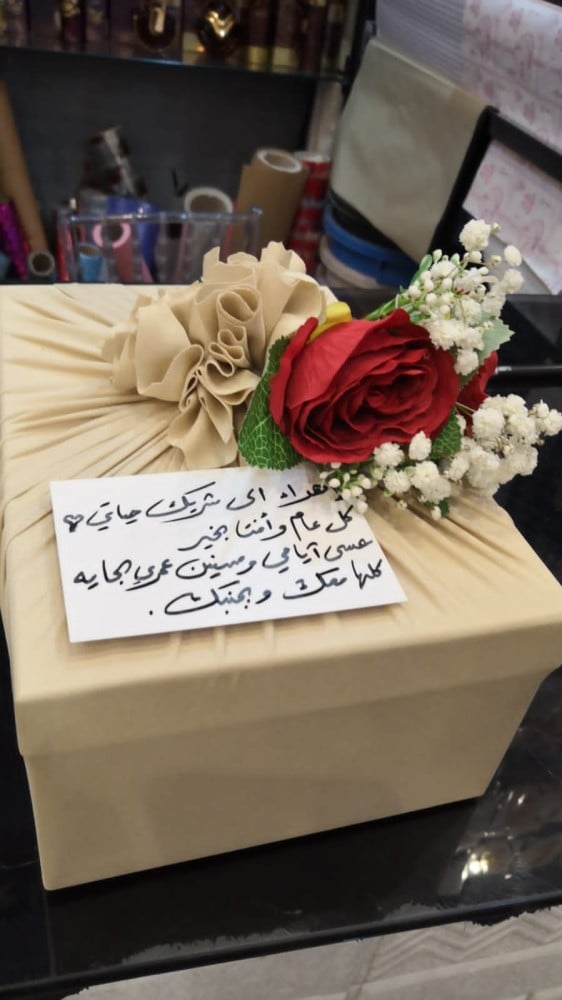 اهداء الى شريك حياتي ♡
كل عام وأنت بخير
عسى أيامي وسنين عمري الجايه
كلها معك وبجنبك .